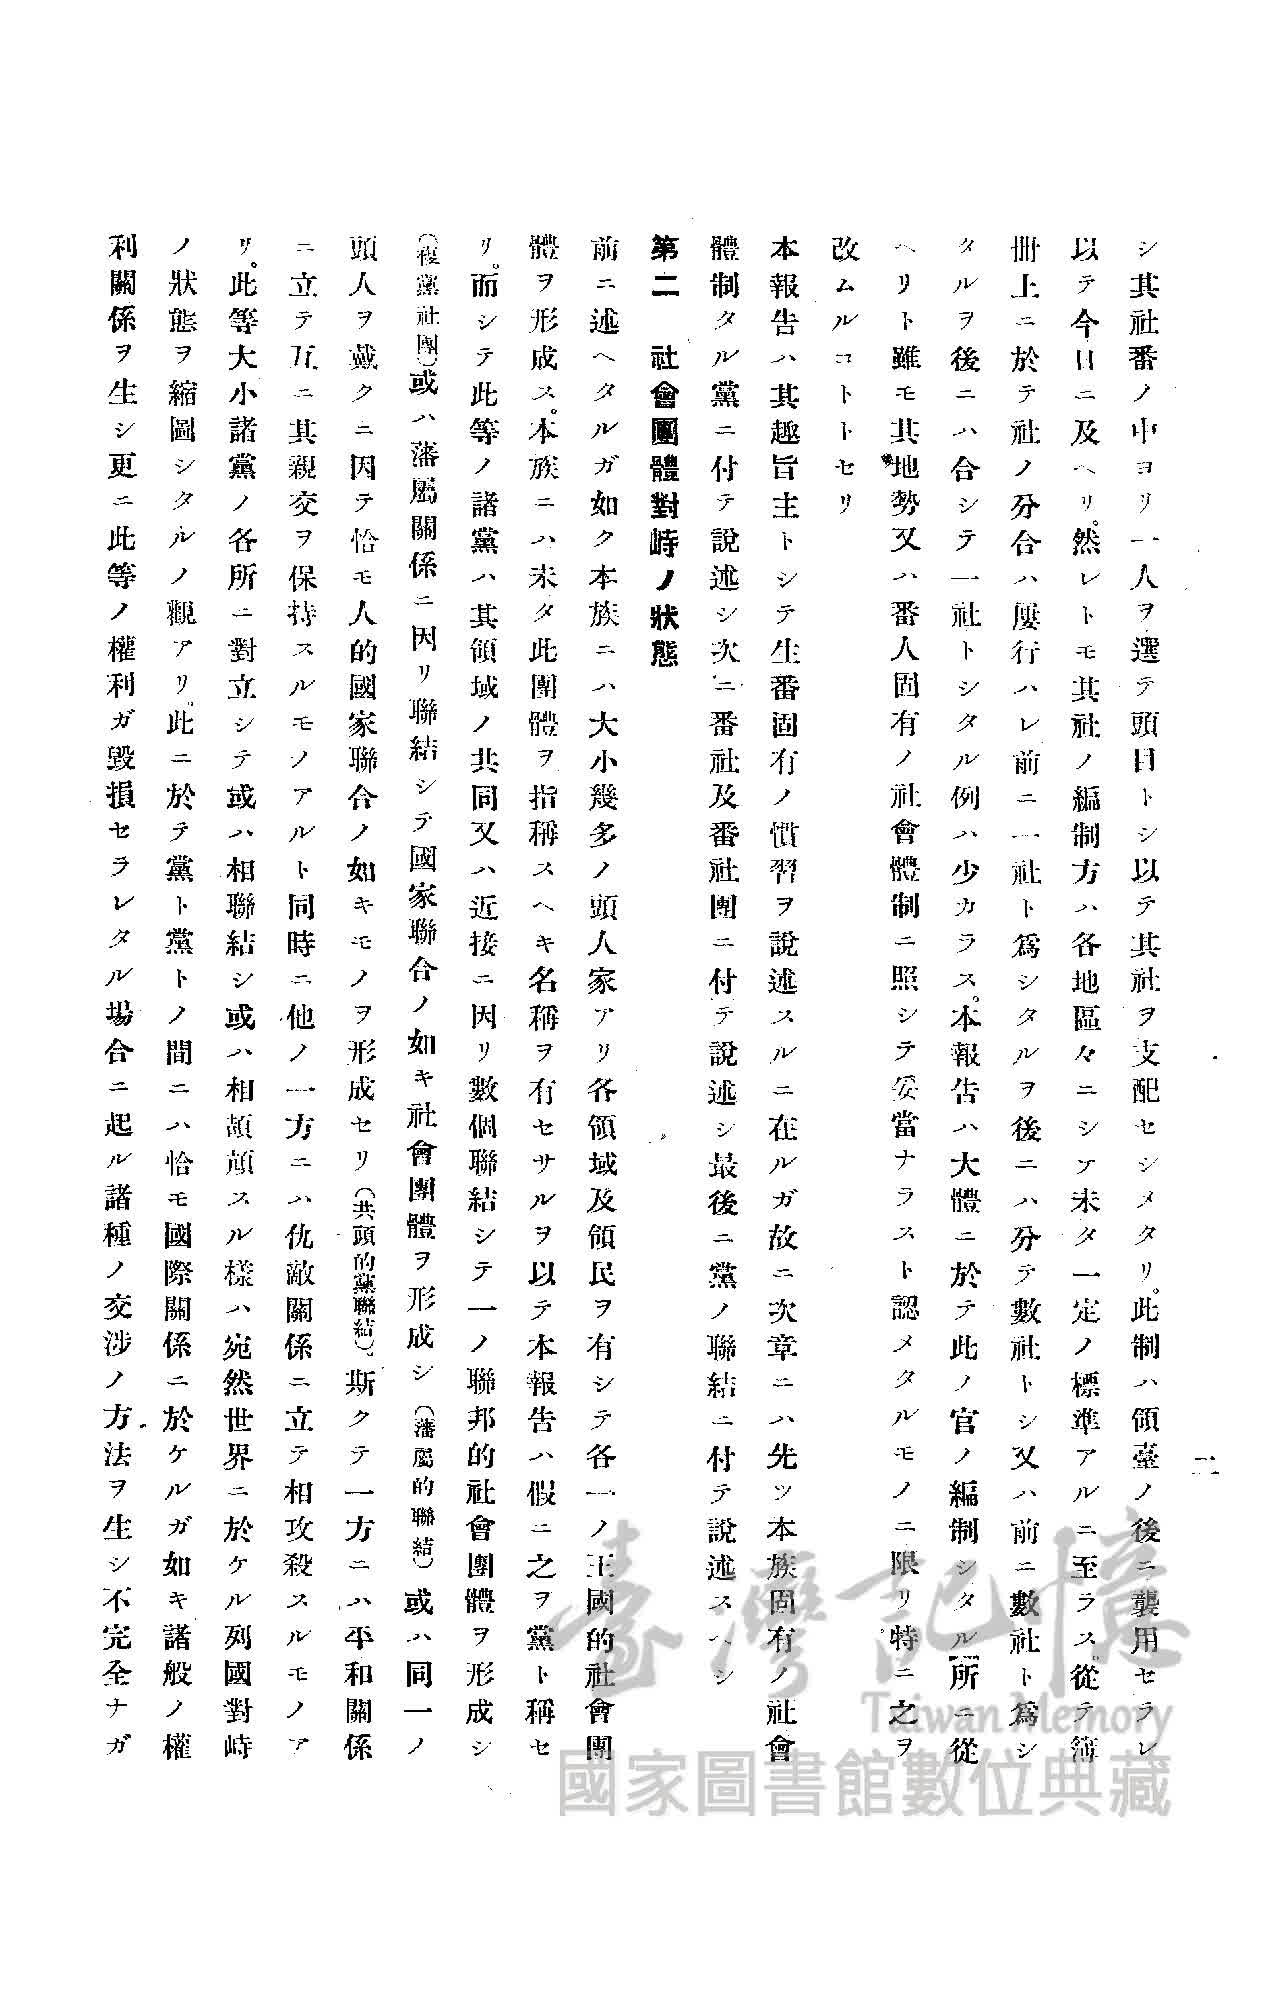 シ其社番ノ中ヨリ一人ヲ選テ頭目トシ以テ其社ヲ支配セシメタリ。此制ハ領臺ノ後ニ襲用セラレ
以テ今日ニ及ヘリ。然レトモ其社ノ編制方ハ各地區々ニシテ未タ一定ノ標準アルニ至ラス。從テ簿
冊上ニ於テ社ノ分合ハ屢行ハレ前ニ一社ト爲シタルヲ後ニハ分テ數社トシ又ハ前ニ數社ト爲シ
タルヲ後ニハ合シテ一社トシタル例ハ少カラス。本報告ハ大體ニ於テ此ノ官ノ編制シタル所ニ從
ヘリト雖モ其地勢又ハ番人固有ノ社會體制ニ照シテ妥當ナラスト認メタルモノニ限リ特ニ之ヲ
改ムルコトトセリ
本報告ハ其趣旨主トシテ生番固有ノ慣習ヲ說述スルニ在ルガ故ニ次章ニハ先ツ本族固有ノ社會
體制タル黨ニ付テ說述シ次ニ番社及番社團ニ付テ說述シ最後ニ黨ノ聯結ニ付テ說述スヘシ
第二 社會團體對峙ノ狀態
前ニ述ヘタルガ如ク本族ニハ大小幾多ノ頭人家アリ各領域及領民ヲ有シテ各一ノ王國的社會團
體ヲ形成ス。本族ニハ未タ此團體ヲ指稱スヘキ名稱ヲ有セサルヲ以テ本報告ハ假ニ之ヲ黨ト稱セ
リ。而シテ此等ノ諸黨ハ其領域ノ共同又ハ近接ニ因リ數個聯結シテ一ノ聯邦的社會團體ヲ形成シ
(複黨社團)或ハ藩屬關係ニ因リ聯結シテ國家聯合ノ如キ社會團體ヲ形成シ(藩屬的聯結)或ハ同一ノ
頭人ヲ戴クニ因テ恰モ人的國家聯合ノ如キモノヲ形成セリ(共頭的黨聯結)、斯クテ一方ニハ平和關係
ニ立テ互ニ其親交ヲ保持スルモノアルト同時ニ他ノ一方ニハ仇敵關係ニ立テ相攻殺スルモノア
リ。此等大小諸黨ノ各所ニ對立シテ或ハ相聯結シ或ハ相頡頏スル樣ハ宛然世界ニ於ケル列國對峙
ノ狀態ヲ縮圖シタルノ觀アリ。此ニ於テ黨ト黨トノ間ニハ恰モ國際關係ニ於ケルガ如キ諸般ノ權
利關係ヲ生シ更ニ此等ノ權利ガ毀損セラレタル場合ニ起ル諸種ノ交涉ノ方法ヲ生シ不完全ナガ
二
臺灣記憶
Taiwan Memory
國家圖書館數位典藏